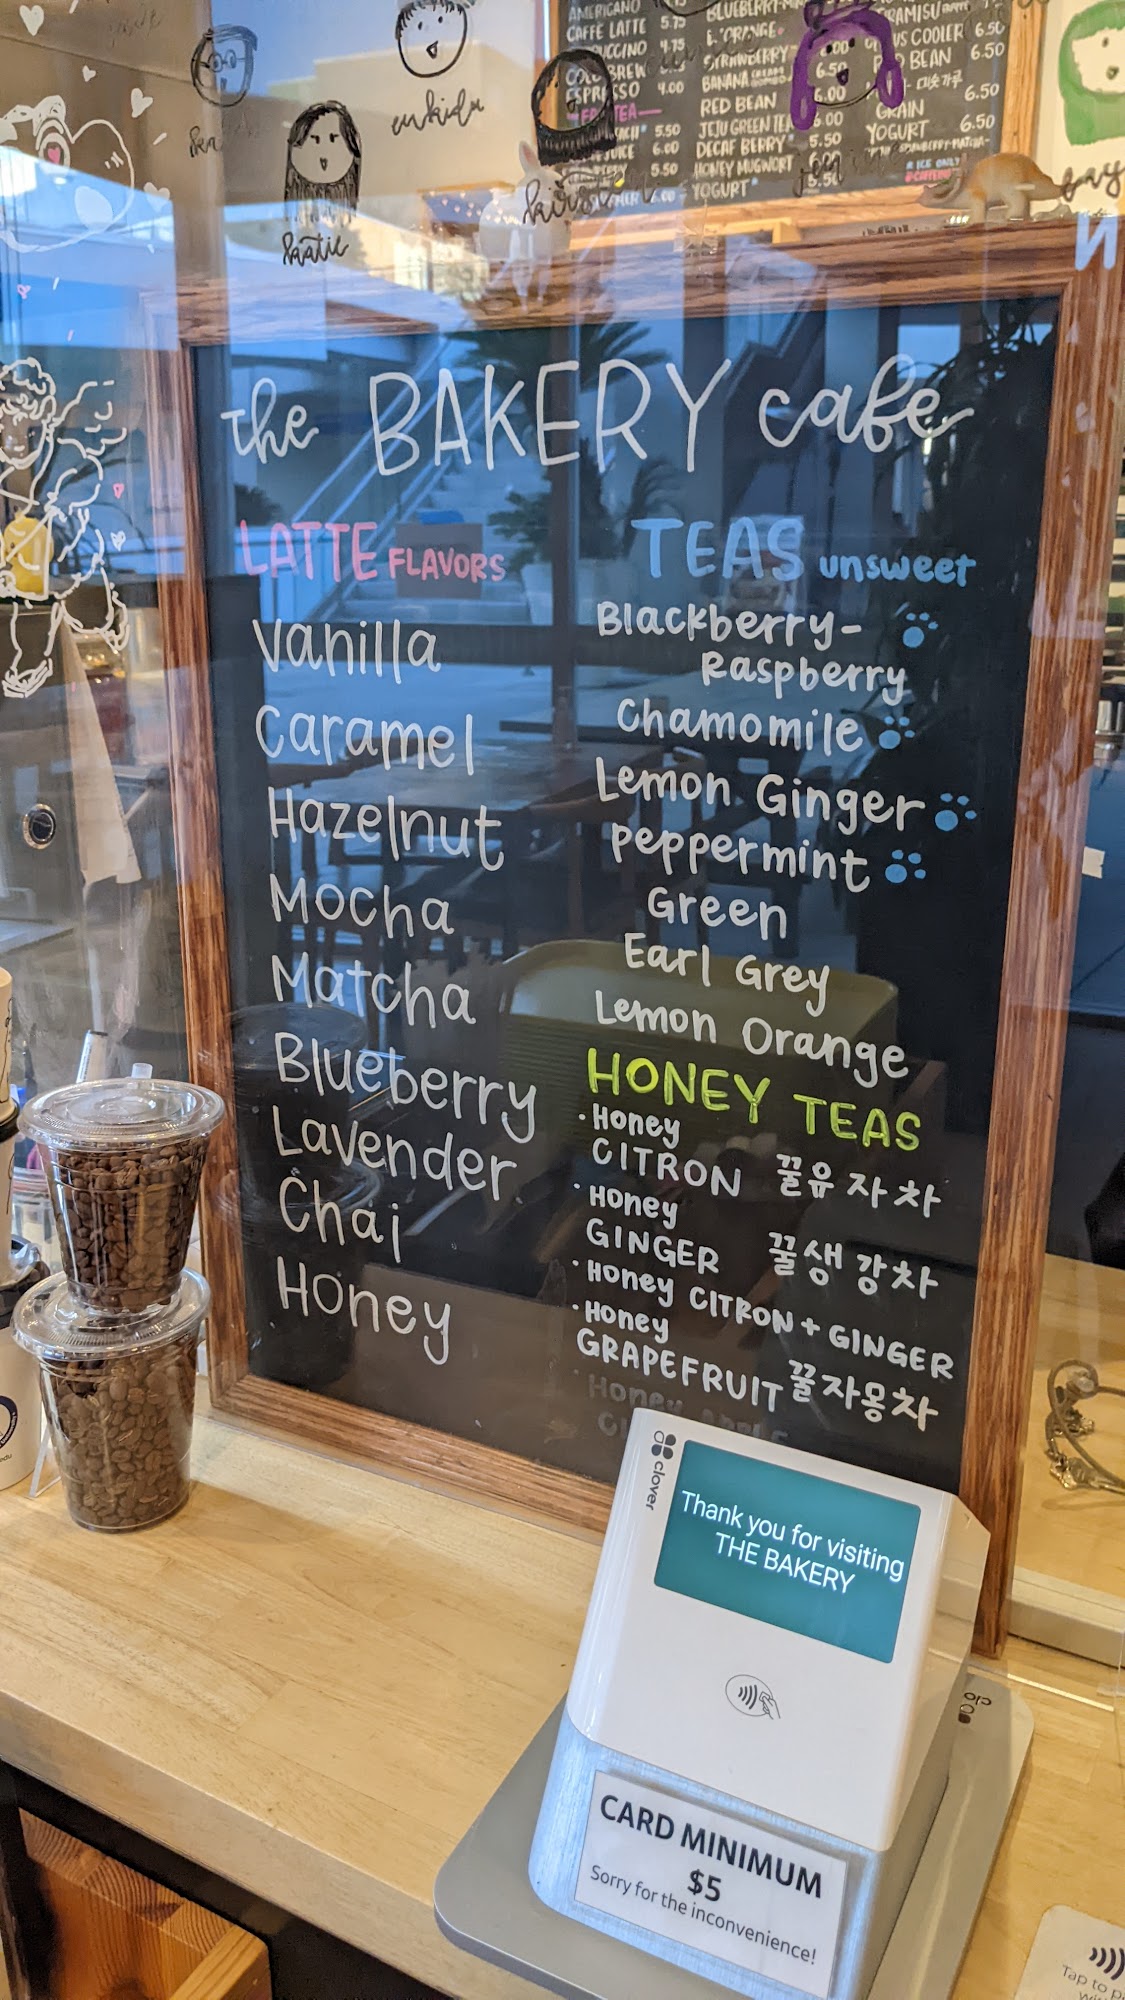 AMERICANO
CAFFE LATTE 5.75
4.75
COLD BREW
ESPRESSO 4.00
TEA
5.50
JUICE 6.00
5.50
ORANGE
STRAWBERRY
BANANA
6.50
RED BEAN 6.00
JEJU GREEN TEA 6.00
DECAF BERRY 5.50
HONEY MUGWORT
YOGURT 5.50
TIRAMISU
COOLER 6.50
BEAN 6.50
GRAIN 6.50
YOGURT 6.50
ICE ONLY
katie
the BAKERY cafe
LATTE FLAVORS
Vanilla
Caramel
Hazelnut
Mocha
Matcha
Blueberry
Lavender
Chai
Honey
TEAS unsweet
Blackberry-
Raspberry
Chamomile
Lemon Ginger
Peppermint
Green
Earl Grey
Lemon Orange
HONEY TEAS
·Honey
CITRON 꿀유자차
·Honey
GINGER 꿀생강차
·Honey CITRON + GINGER
·Honey
GRAPEFRUIT 꿀자몽차
·Honey
clover
Thank you for visiting
THE BAKERY
CARD MINIMUM
$5
Sorry for the inconvenience!
Tap to